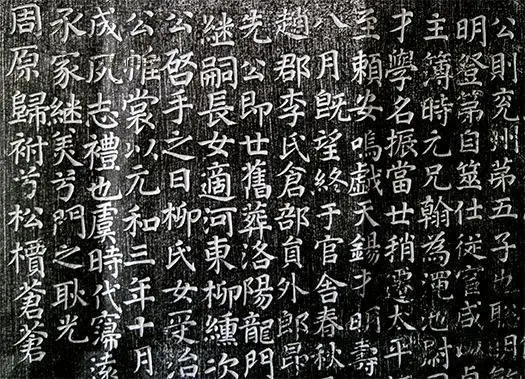 公則兖州第五子也聡明
明登第自筮仕従官咸以
主簿時元兄翰為渑池尉
才學名振當世稍遷太平
至頼安嗚戯天錫才明壽
八月既望終于官舍春秋
趙郡李氏倉部貟外郎昴
先公即世舊葬洛陽龍門
継嗣長女適河東柳纁次
公啓手之日柳氏女受治
公帷裳以元和三年十月
成夙志禮也虞時代寖遠
承家継美兮門之耿光
周原歸祔兮松檟蒼蒼